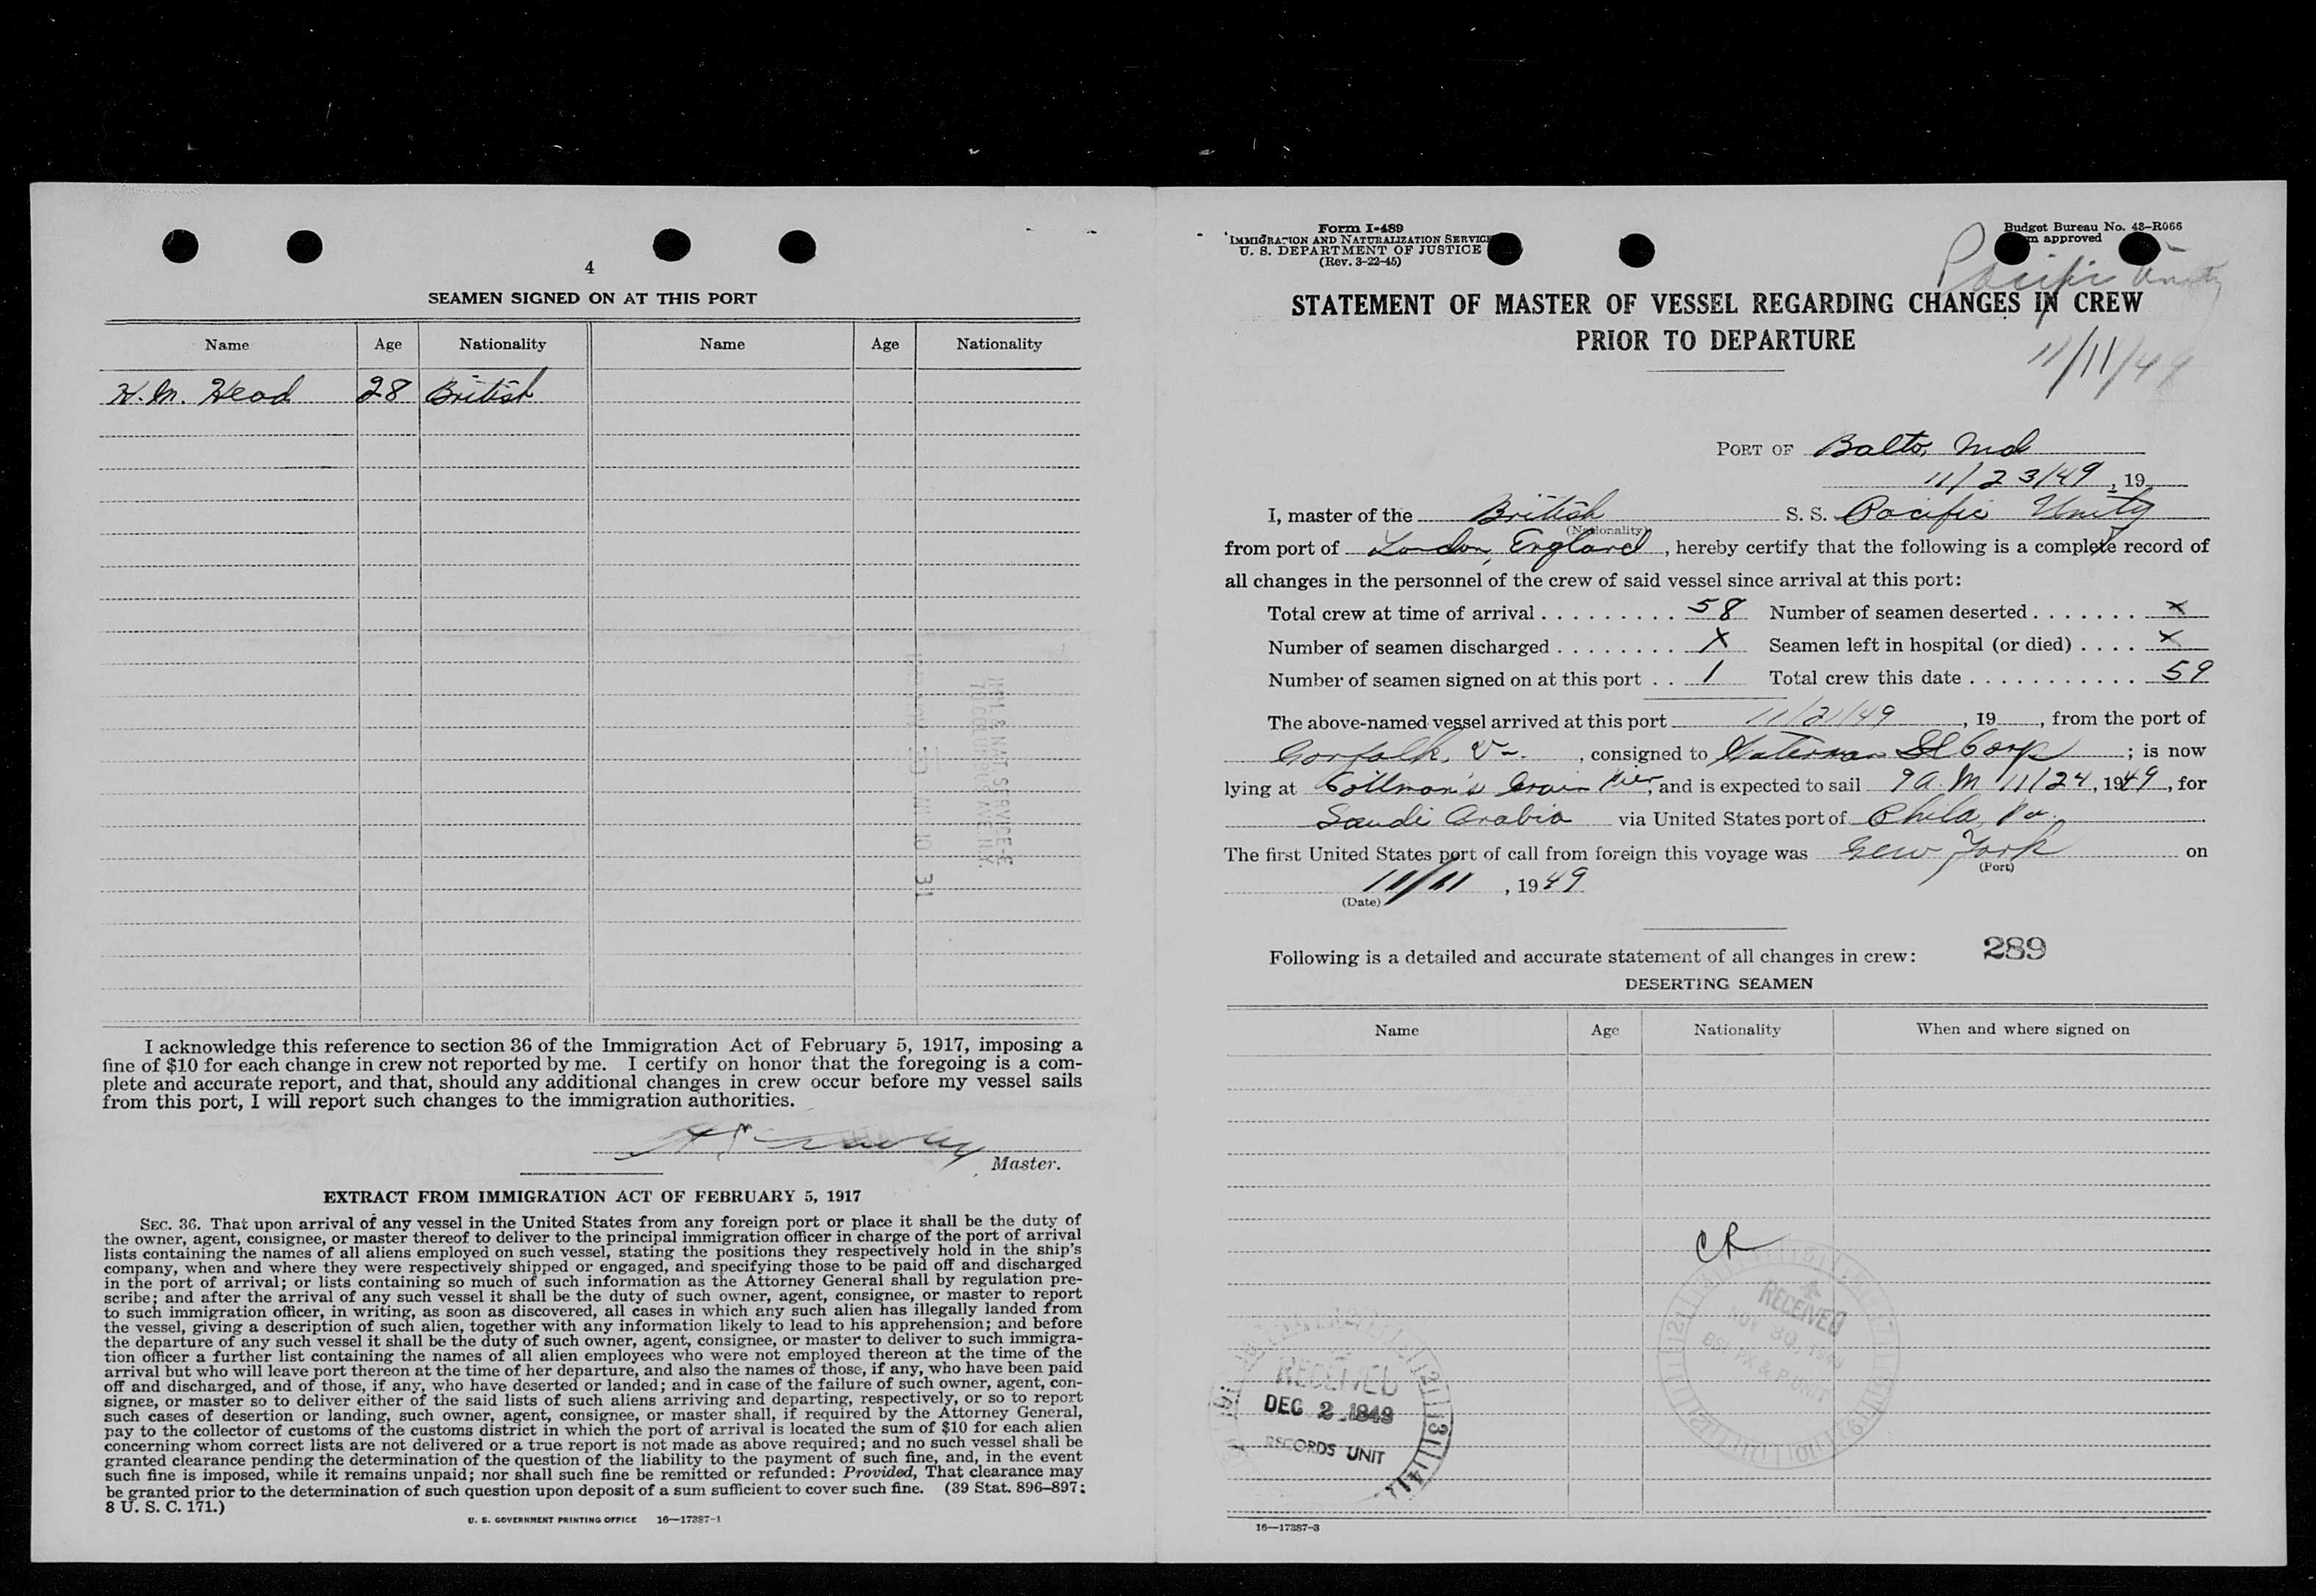 4
SEAMEN SIGNED ON AT THIS PORT
Name Age Nationality Name Age Nationality
H. M. Head 28 British
I acknowledge this reference to section 36 of the Immigration Act of February 5, 1917, imposing a
fine of $10 for each change in crew not reported by me. I certify on honor that the foregoing is a com-
plete and accurate report, and that, should any additional changes in crew occur before my vessel sails
from this port, I will report such changes to the immigration authorities.
Master.
EXTRACT FROM IMMIGRATION ACT OF FEBRUARY 5, 1917
SEC. 36. That upon arrival of any vessel in the United States from any foreign port or place it shall be the duty of
the owner, agent, consignee, or master thereof to deliver to the principal immigration officer in charge of the port of arrival
lists containing the names of all aliens employed on such vessel, stating the positions they respectively hold in the ship's
company, when and where they were respectively shipped or engaged, and specifying those to be paid off and discharged
in the port of arrival; or lists containing so much of such information as the Attorney General shall by regulation pre-
scribe; and after the arrival of any such vessel it shall be the duty of such owner, agent, consignee, or master to report
to such immigration officer, in writing, as soon as discovered, all cases in which any such alien has illegally landed from
the vessel, giving a description of such alien, together with any information likely to lead to his apprehension; and before
the departure of any such vessel it shall be the duty of such owner, agent, consignee, or master to deliver to such immigra-
tion officer a further list containing the names of all alien employees who were not employed thereon at the time of the
arrival but who will leave port thereon at the time of her departure, and also the names of those, if any, who have been paid
off and discharged, and of those, if any, who have deserted or landed; and in case of the failure of such owner, agent, con-
signee, or master so to deliver either of the said lists of such aliens arriving and departing, respectively, or so to report
such cases of desertion or landing, such owner, agent, consignee, or master shall, if required by the Attorney General,
pay to the collector of customs of the customs district in which the port of arrival is located the sum of $10 for each alien
concerning whom correct lists are not delivered or a true report is not made as above required; and no such vessel shall be
granted clearance pending the determination of the question of the liability to the payment of such fine, and, in the event
such fine is imposed, while it remains unpaid; nor shall such fine be remitted or refunded: Provided, That clearance may
be granted prior to the determination of such question upon deposit of a sum sufficient to cover such fine. (39 Stat. 896–897;
8 U. S. C. 171.)
U. S. GOVERNMENT PRINTING OFFICE 16—17387-1
Form I-489
IMMIGRATION AND NATURALIZATION SERVICE
U. S. DEPARTMENT OF JUSTICE
(Rev. 3-22-45)
Budget Bureau No. 43-R066
approved
Pacific Unity
STATEMENT OF MASTER OF VESSEL REGARDING CHANGES IN CREW
PRIOR TO DEPARTURE
11/11/49
PORT OF Balto, Md
11/23/49, 19
I, master of the British S. S. Pacific Unity
(Nationality)
from port of London, England, hereby certify that the following is a complete record of
all changes in the personnel of the crew of said vessel since arrival at this port:
Total crew at time of arrival . . . . . . . . . . 58 Number of seamen deserted . . . . . . . x
Number of seamen discharged . . . . . . . . X Seamen left in hospital (or died) . . . . x
Number of seamen signed on at this port . . 1 Total crew this date . . . . . . . . . . . 59
The above-named vessel arrived at this port 11/21/49, 19 , from the port of
Norfolk, Va., consigned to Waterman SS Corp; is now
lying at Grain Pier, and is expected to sail 9 A. M 11/24, 1949, for
Saudi Arabia via United States port of Phila, Pa.
The first United States port of call from foreign this voyage was New York on
(Port)
11/11, 1949
(Date)
Following is a detailed and accurate statement of all changes in crew: 289
DESERTING SEAMEN
Name Age Nationality When and where signed on
CR
RECEIVED
NOV 30 1949
RECEIVED
DEC 2 1949
RECORDS UNIT
16—17387-3